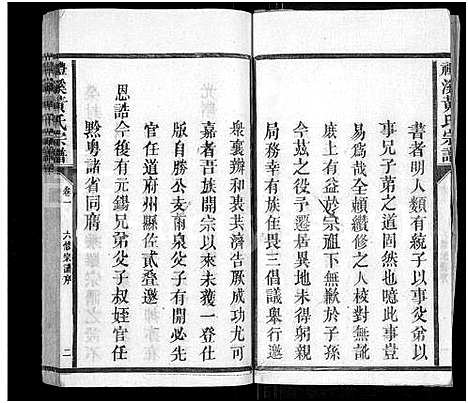 禮溪黃氏宗譜
書者明人類有統子以事父弟以
事兄子弟之道固然也噫此事豈
易為哉全頼纘修之人核對無訛
故上有益於宗祖下無歉於子孫
今茲之役予遷居異地未得躬親
局務幸有族住畏三倡議舉行邀
眾襄辦和衷共濟告厥成功尤可
嘉者吾族開宗以來未獲一登仕
版自勝公支南泉公支有開必先
官任道府州縣佐貳疊邀
恩誥今後有元錫兄弟父子叔姪官任
黔粵諸省同府
禮溪黃氏宗譜
卷一
六修宗譜序
二